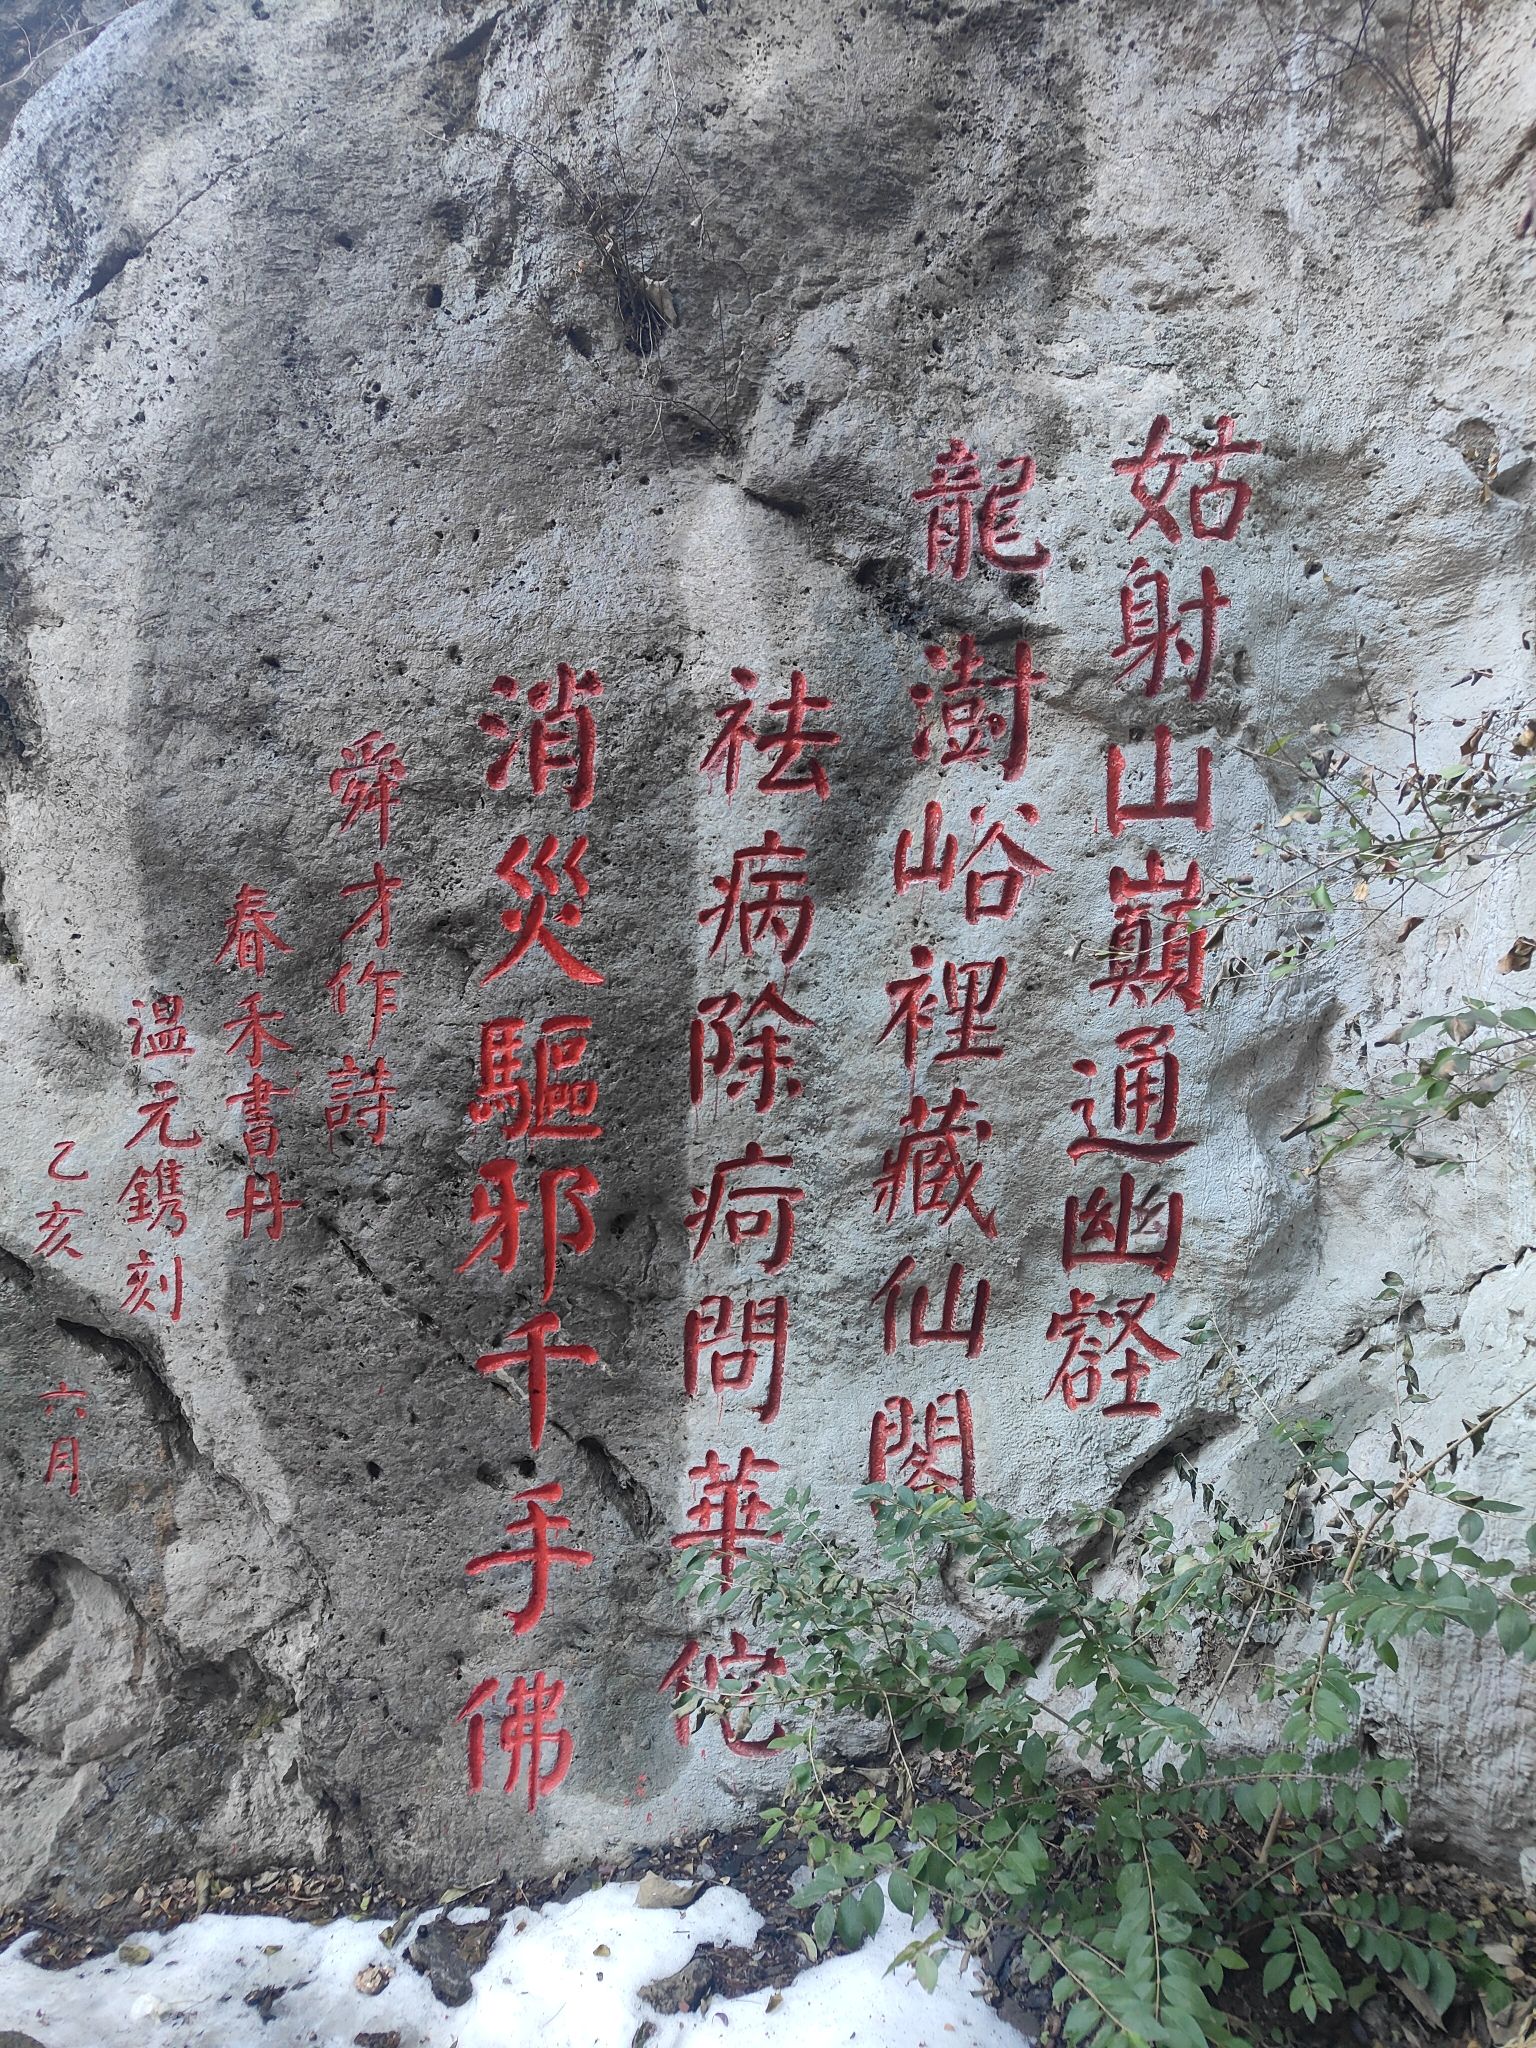 姑射山巔通幽壑
龍澍峪裡藏仙閣
祛病除疴問華佗
消災驅邪千手佛
舜才作詩
春禾書丹
溫元鐫刻
乙亥 六月